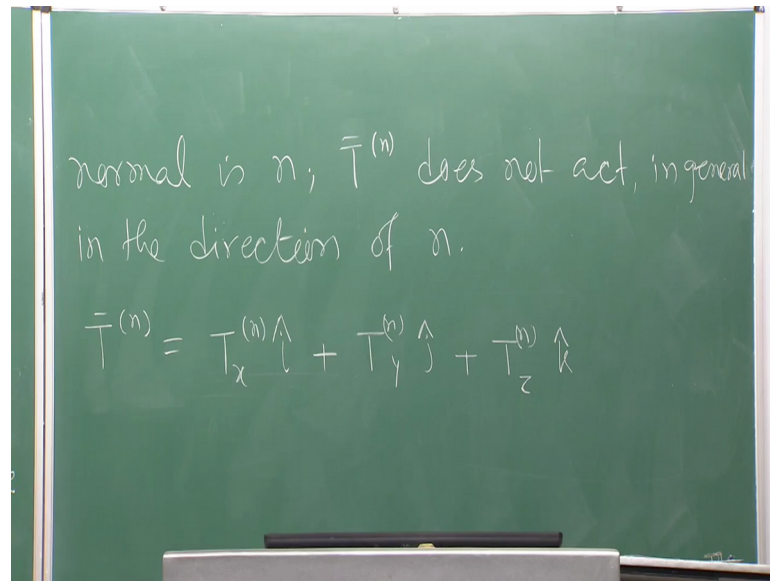 normal is n; T̄⁽ⁿ⁾ does not act, in general
in the direction of n.
T̄⁽ⁿ⁾ = Tₓ⁽ⁿ⁾ î + T_y⁽ⁿ⁾ ĵ + T_z⁽ⁿ⁾ k̂